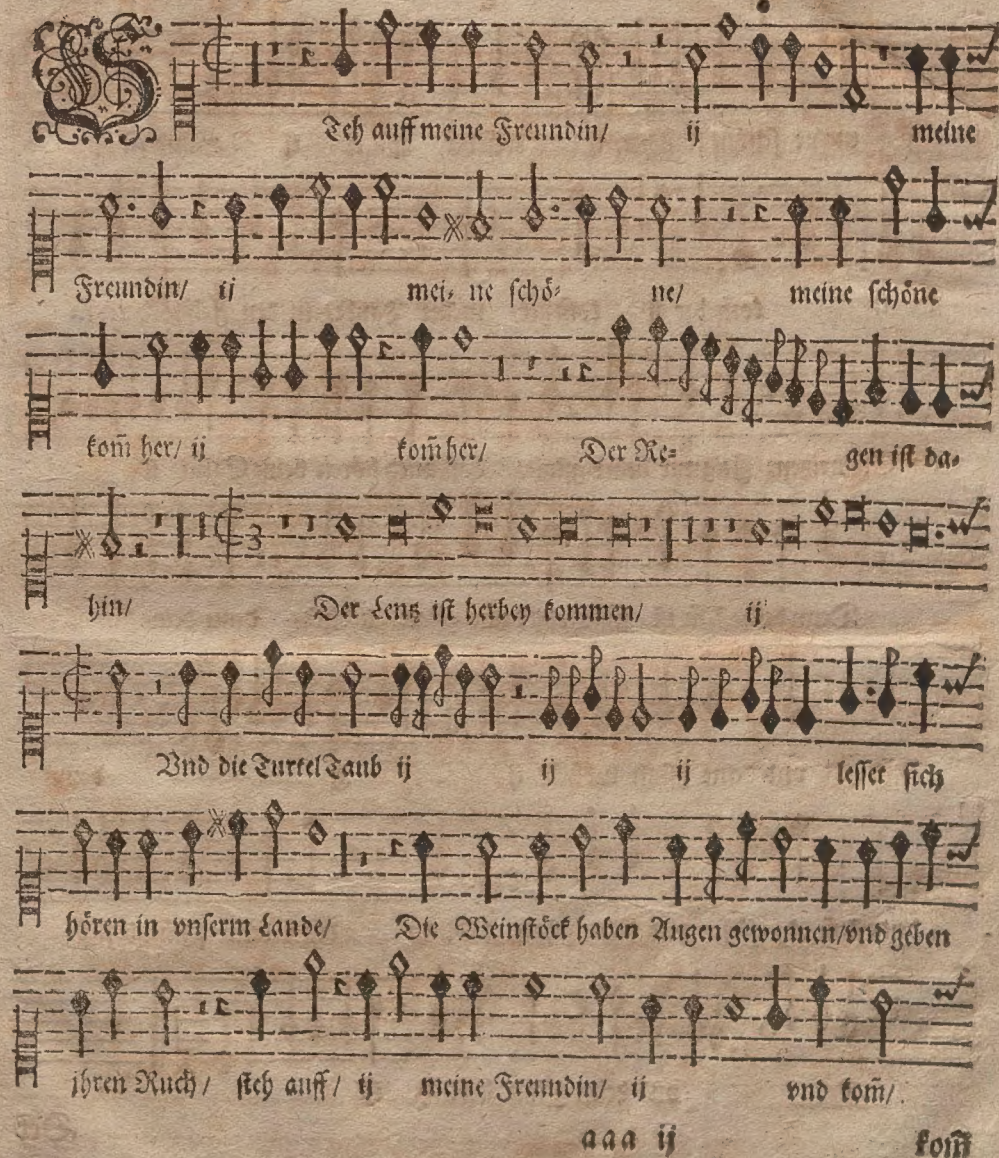 STeh auff meine Freundin/ ij meine
Freundin/ ij mei- ne schö- ne/ meine schöne
kom̄ her/ ij kom̄ her/ Der Re- gen ist da-
hin/ Der Lentz ist herbey kommen/ ij
Vnd die Turtel Taub ij ij ij lesset sich
hören in vnserm Lande/ Die Weinstöck haben Augen gewonnen/ vnd geben
jhren Ruch/ steh auff/ ij meine Freundin/ ij vnd kom̄/
aaa ij kom̄